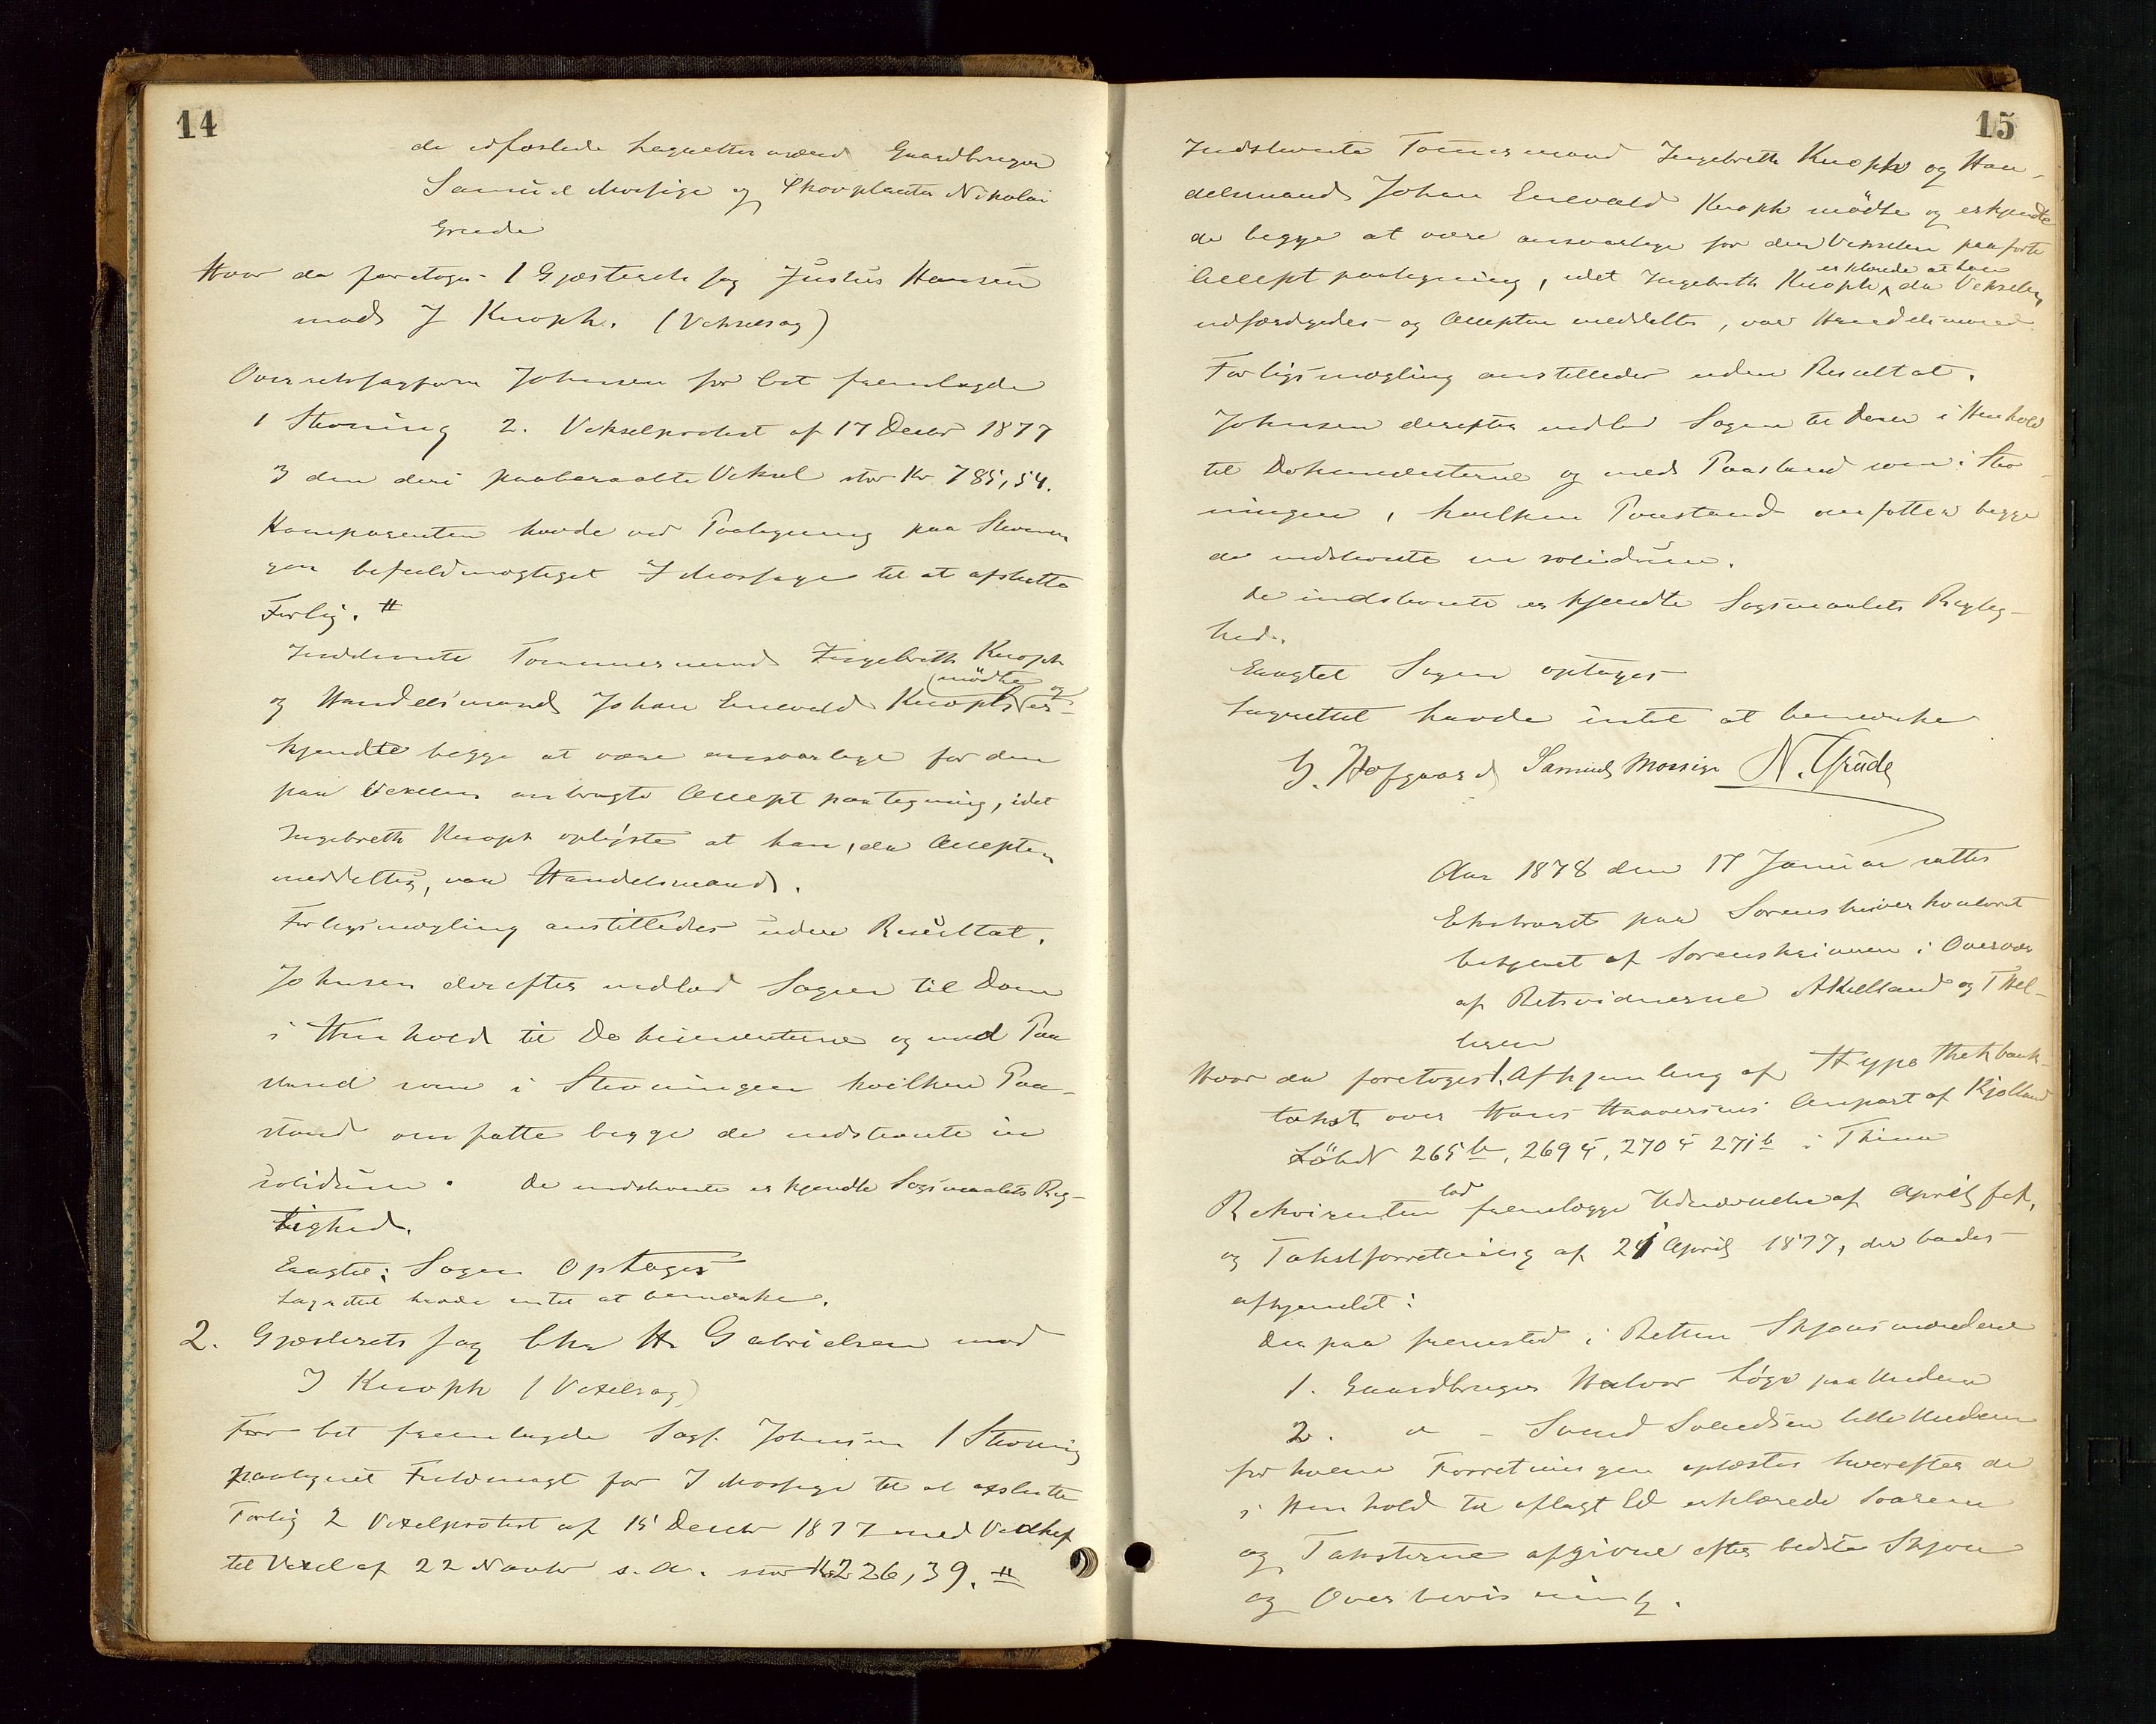 14
de udfæstede Lagrettesmænd Gaardbruger
Samuel Mossige og Skovplanter Nikolai
Grude
Hvor da foretoges 1 Gjæsteretssag Justus Hansen
mod J Knoph. (Vekselsag)
Overretssagfører Johnsen for Cit fremlagde
1 Stevning 2. Vekselprotest af 17 Decbr 1877
3 den deri paaberaabte Veksel stor Kr 785,54.
Komparenten havde ved Paategning paa Stevnin
gen befuldmægtiget J Mossige til at afslutte
Forlig. #
Indstevnte Tømmermand Ingebreth Knoph
og Handelsmand Johan Enevald Knoph mødte og er-
kjendte begge at være ansvarlige for den
paa Vexelen anbragte Accept paategning, idet
Ingebreth Knoph oplyste at han, da Accepten
meddeltes, var Handelsmand.
Forligsmægling anstilledes uden Resultat.
Johnsen derefter indlod Sagen til Dom
i Henhold til Dokumenterne og med Paa
stand som i Stevningen hvilken Paa-
stand omfatte begge de indstevnte in
solidum. De indstevnte erkjendte Sagsmaalets Rig-
tighed.
Eragtet: Sagen Optages
Lagrettet havde intet at bemærke.
2. Gjæsterets sag Chr H. Gabrielsen mod
J Knoph (Vexelsag)
For Cit fremlagde Sagf. Johnsen 1 Stevning
paategnet Fuldmagt for J Mossige til at afslutte
Forlig 2 Vexelprotest af 15 Decbr 1877 med Vedhef
til Vexel af 22 Novbr s. A. stor Kr 226,39. #
15
Indstevnte Tømmermand Ingebreth Knoph og Han-
delsmand Johan Enevald Knoph mødte og erkjendte
de begge at være ansvarlige for den Vekselen paaførte
Accept paategning, idet Ingebreth Knoph erklærede at han da Vekselen
udfærdigedes og Accepten meddeltes, var Handelsmand
Forligsmægling anstilledes uden Resultat.
Johnsen derefter indlod Sagen til Dom i Henhold
til Dokumenterne og med Paastand som i Stev
ningen, hvilken Paastand omfatter begge
de indstevnte in solidum.
De indstevnte erkjendte Sagsmaalets Rigtig-
hed.
Eragtet Sagen optages
Lagrettet havde intet at bemærke
G. Hofgaard Samuel Mossige N. Grude
Aar 1878 den 17 Januar sattes
Ekstraret paa Sorenskriverkontoret
betjent af Sorenskriveren i Overvær
af Retsvidnerne AKielland og T Hel-
lesen
Hvor da foretoges 1. Afhjemling af Hypothekbank-
takst over Hans Haaversens Anpart af Kjølland
LöbN 265 b, 269 c, 270 c 271 b i Thime
Rekvirenten lod fremlægge Udnævnelse af April sed.
og Takstforretning af 21 April 1877, der bades
afhjemlet:
Derpaa fremstod i Retten Skjønsmændene
1. Gaardbruger Halvor Løge paa Undem
2. " - Svend Svendsen lille Undem
for hvem Forretningen oplæstes hvorefter de
i Henhold til aflagt Ed erklærede Svarene
og Taksterne afgivne efter bedste Skjøn
og Overbevisning.